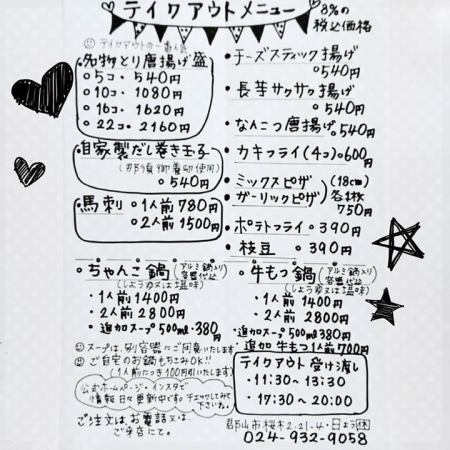 テイクアウトメニュー
8%の
税込価格
テイクアウトの一番人気
名物とり唐揚げ盛
○5コ・540円
○10コ・1080円
○16コ・1620円
○22コ・2160円
自家製だし巻き玉子
(那須御養卵使用)
○540円
馬刺 ○1人前780円
○2人前1500円
・チーズスティック揚げ
○540円
・長芋サクサク揚げ
○540円
・なんこつ唐揚げ
○540円
・カキフライ(4コ)○600円
・ミックスピザ (18cm)
・ガーリックピザ 各1枚
750円
・ポテトフライ ○390円
・枝豆 ○390円
・ちゃんこ鍋 (アルミ鍋入り容器代込)
(しょうゆ又は塩味)
・1人前1400円
・2人前2800円
・追加スープ500ml・380円
・牛もつ鍋 (アルミ鍋入り容器代込)
(しょうゆ又は塩味)
・1人前1400円
・2人前2800円
・追加スープ500ml 380円
・追加牛もつ1人前700円
スープは、別容器にご用意いたします
ご自宅のお鍋もちこみOK!!
(1人前につき100円引いたします)
公式ホームページ・インスタで
情報日々更新中です。チェックしてみて
下さいね。
ご注文は、お電話又は、
ご来店にて。
テイクアウト受け渡し
・11:30〜13:30
・17:30〜20:00
郡山市桜木2-21-4・日よう休
024-932-9058